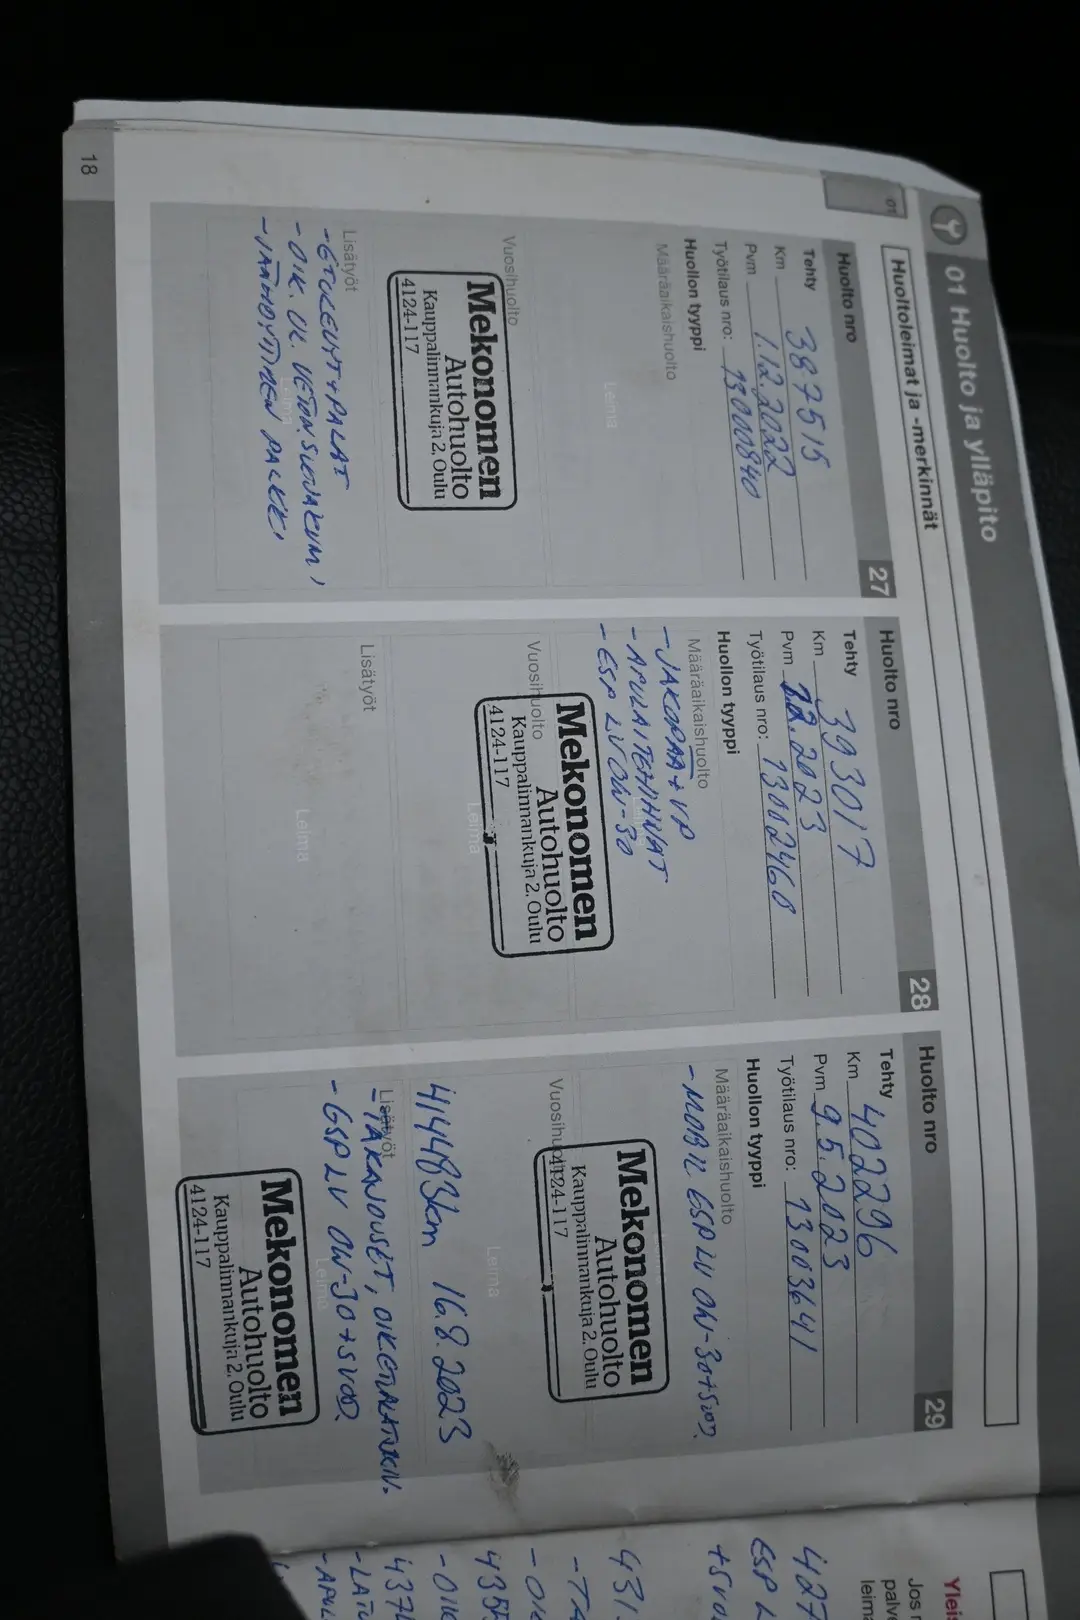 01 Huolto ja ylläpito
01
Huoltoleimat ja -merkinnät
Huolto nro 27
Tehty
Km 387515
Pvm 1.12.2022
Työtilaus nro: 13000840
Huollon tyyppi
Määräaikaishuolto
Leima
Vuosihuolto
Mekonomen
Autohuolto
Kauppalinnankuja 2, Oulu
4124-117
Lisätyöt
-ETULEVYT+PALAT
-OIK. UL.
Leima
-JÄÄHDYTTIMEN
18
Huolto nro 28
Tehty
Km 393017
Pvm 2.2023
Työtilaus nro: 13002460
Huollon tyyppi
Määräaikaishuolto
-JAKOPÄÄ+VP
-APULAITEHIHNAT
-ESP LV 0W-30
Vuosihuolto
Mekonomen
Autohuolto
Kauppalinnankuja 2, Oulu
4124-117
Leima
Lisätyöt
Leima
Huolto nro 29
Tehty
Km 402296
Pvm 9.5.2023
Työtilaus nro: 13003641
Huollon tyyppi
Määräaikaishuolto
-MOBIL ESP LV 0W-30+SUOD.
Vuosihuolto
Mekonomen
Autohuolto
Kauppalinnankuja 2, Oulu
4124-117
Leima
414483km 16.8.2023
Lisätyöt
-TAKAJOUSET,
-ESP LV 0W-30+SUOD.
Leima
Mekonomen
Autohuolto
Kauppalinnankuja 2, Oulu
4124-117
Ylei
Jos r
palve
leima
427
ESP L
+SUO
431
-TA
-OI
435
-OIK
437
-LATU
-APUL